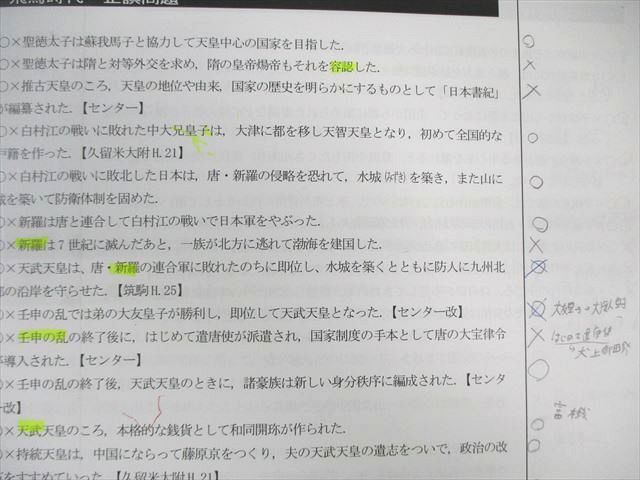 飛鳥時代 正誤問題
○×聖徳太子は蘇我馬子と協力して天皇中心の国家を目指した.
○×聖徳太子は隋と対等外交を求め，隋の皇帝煬帝もそれを容認した.
○×推古天皇のころ，天皇の地位や由来，国家の歴史を明らかにするものとして「日本書紀」
が編纂された.【センター】
○×白村江の戦いに敗れた中大兄皇子は，大津に都を移し天智天皇となり，初めて全国的な
戸籍を作った.【久留米大附H.21】
○×白村江の戦いに敗北した日本は，唐・新羅の侵略を恐れて，水城(みずき)を築き，また山に
城を築いて防衛体制を固めた.
○×新羅は唐と連合して白村江の戦いで日本軍をやぶった.
○×新羅は7世紀に滅んだあと，一族が北方に逃れて渤海を建国した.
○×天武天皇は，唐・新羅の連合軍に敗れたのちに即位し，水城を築くとともに防人に九州北
部の沿岸を守らせた.【筑駒H.25】
○×壬申の乱では弟の大友皇子が勝利し，即位して天武天皇となった.【センター改】
○×壬申の乱の終了後に，はじめて遣唐使が派遣され，国家制度の手本として唐の大宝律令
が導入された.【センター】
○×壬申の乱の終了後，天武天皇のときに，諸豪族は新しい身分秩序に編成された.【センタ
ー改】
○×天武天皇のころ，本格的な銭貨として和同開珎が作られた.
○×持統天皇は，中国にならって藤原京をつくり，夫の天武天皇の遺志をついで，政治の改
革をすすめていった.【久留米大附H.21】
○
×
×
○
○
○
×
○
×
はじめて遣唐使
犬上御田鍬
○
○
○